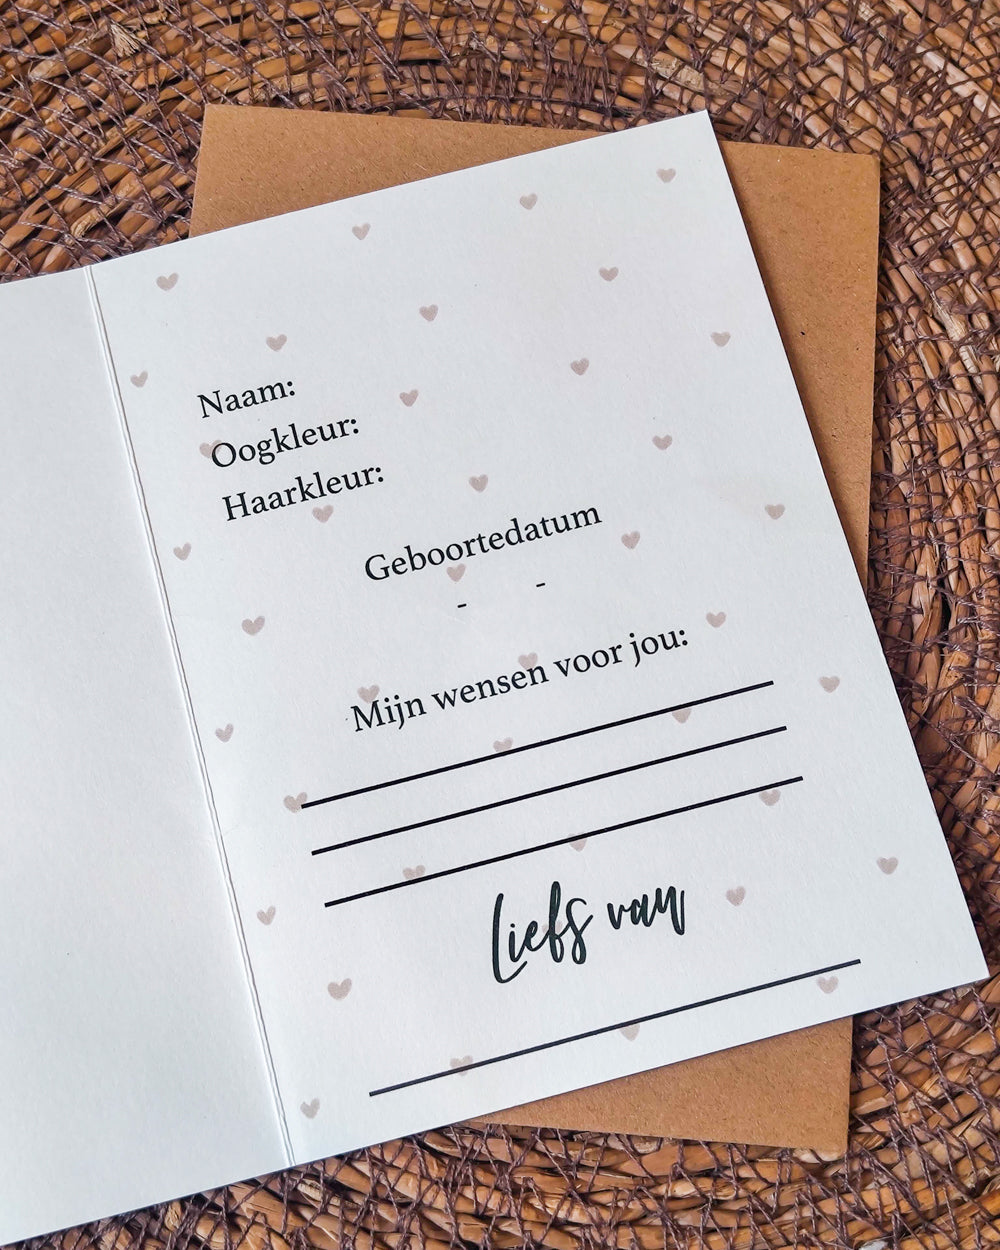 Naam:
Oogkleur:
Haarkleur:
Geboortedatum
- -
Mijn wensen voor jou:
Liefs van